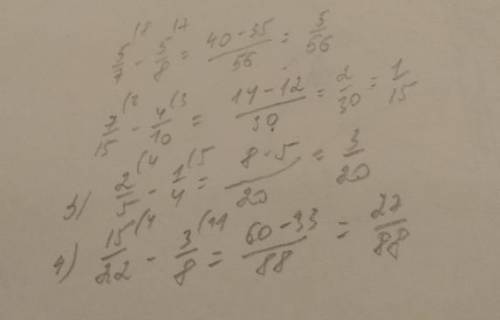 5/7 (8 - 5/8 (7 = 40-35/56 = 5/56
7/15 (2 - 4/10 (3 = 14-12/30 = 2/30 = 1/15
3) 2/5 (4 - 1/4 (5 = 8-5/20 = 3/20
4) 15/22 (4 - 3/8 (11 = 60-33/88 = 27/88